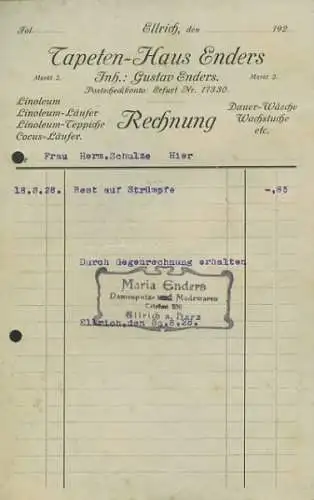 Fol. Ellrich, den 192
Tapeten-Haus Enders
Markt 2. Inh.: Gustav Enders. Markt 2.
Postscheckkonto: Erfurt Nr. 17330.
Linoleum
Linoleum-Läufer
Linoleum-Teppiche
Cocus-Läufer.
Rechnung
Dauer-Wäsche
Wachstuche
etc.
Frau Herm. Schulze Hier
18.8.28. Rest auf Strümpfe -,85
Durch Gegenrechnung erhalten
Maria Enders
Damenputz und Modewaren
Ellrich a. Harz
Ellrich, den